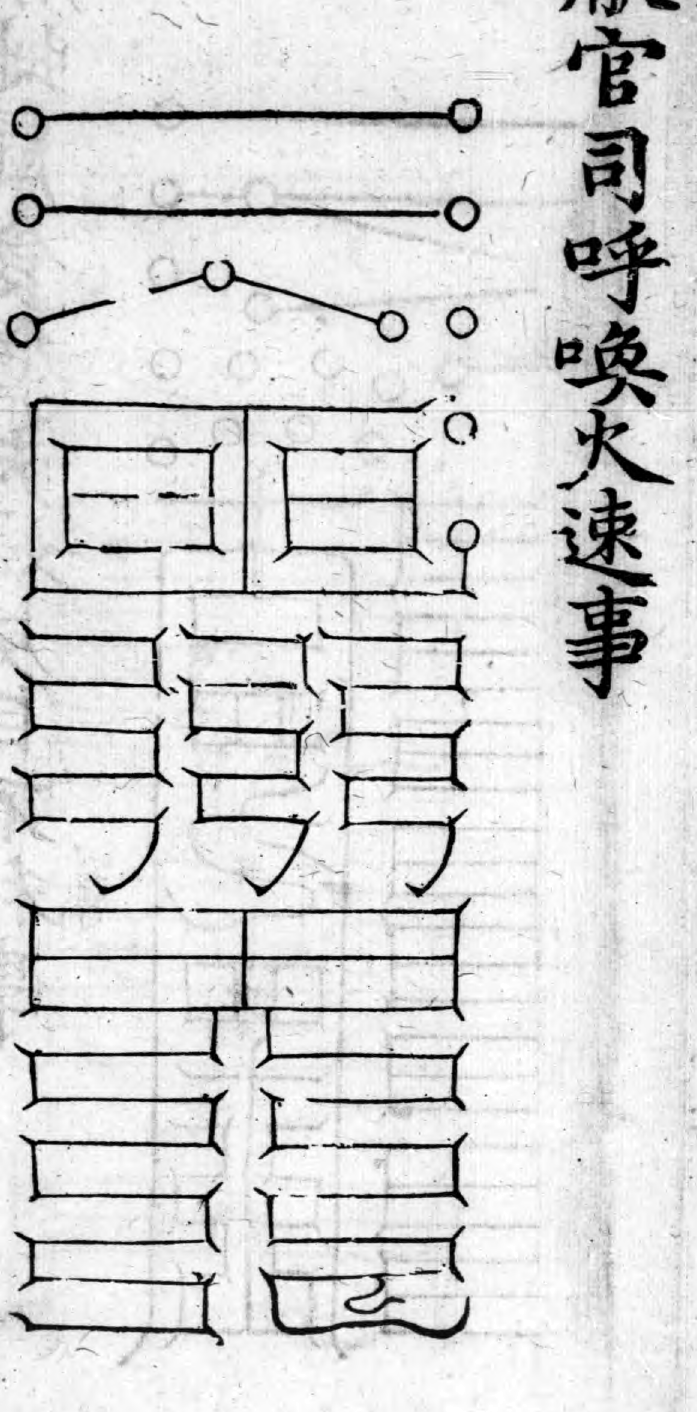 官司呼喚火速事